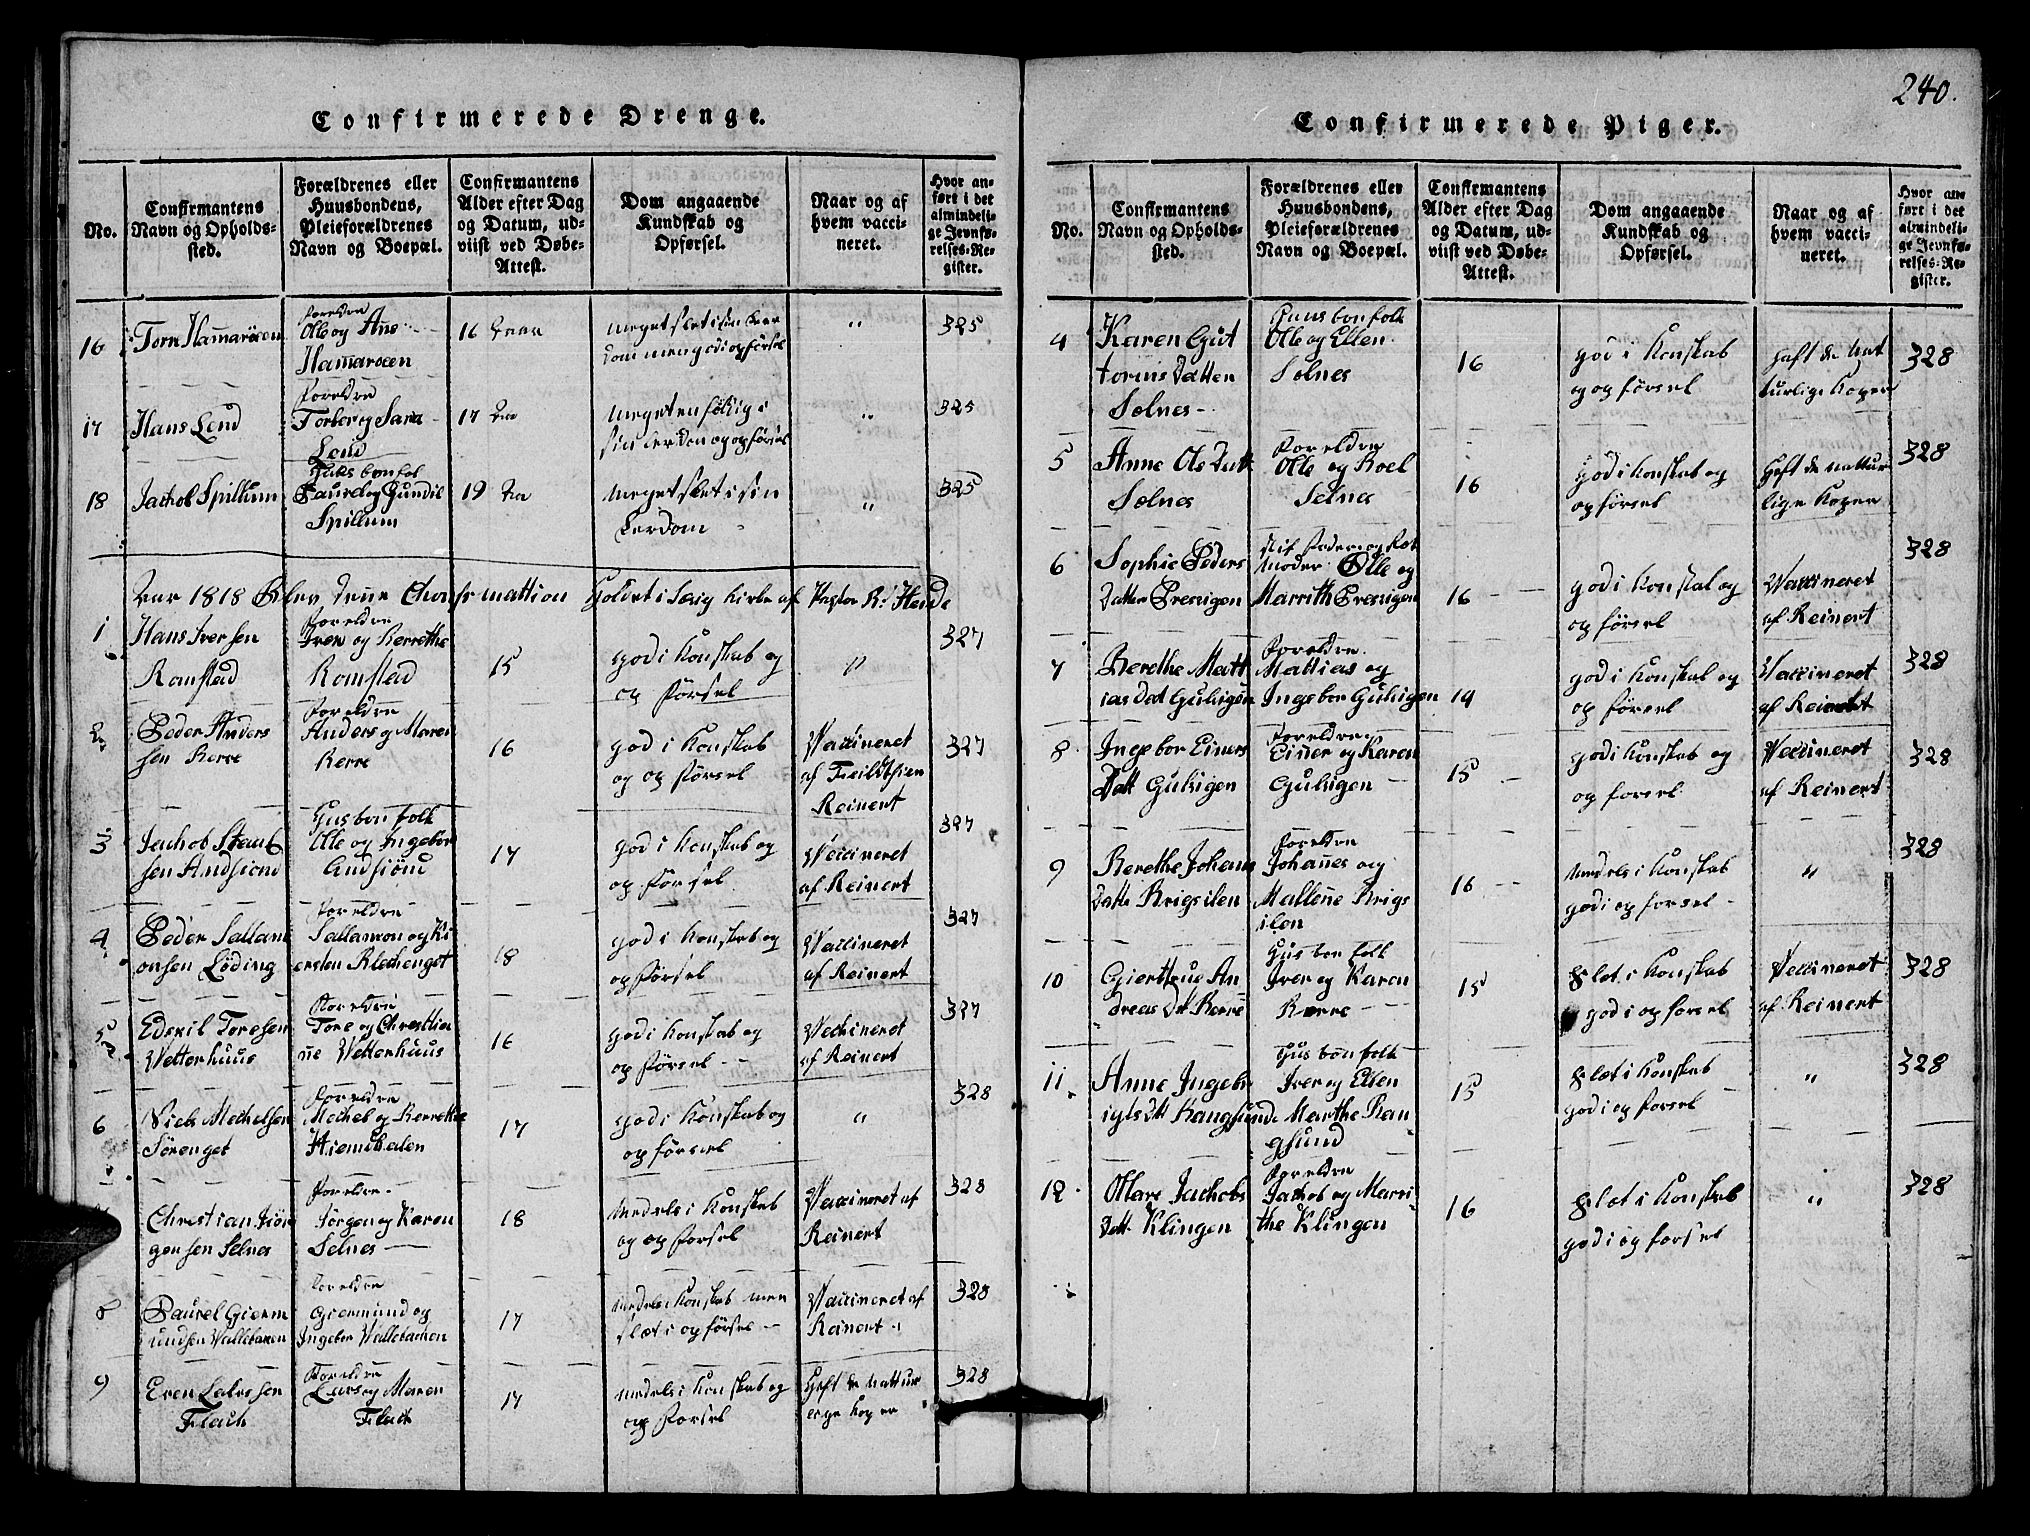 240.
Confirmerede Drenge.
No.
Confirmantens Navn og Opholdssted.
Forældrenes eller Huusbondens, Pleieforældrenes Navn og Boepæl.
Confirmantens Alder efter Dag og Datum, udviist ved Døbe-Attest.
Dom angaaende Kundskab og Opførsel.
Naar og af hvem vaccineret.
Hvor anført i det almindelige Jevnførelses-Register.
16 Torn Hammarøeen
Foreldre
Olle og Ane
Hammaroeen
16
meget slet i sin
men god i opførsel
"
325
17 Hans Lend
Foreldre
Torber og Sara
Lend
17
meget
sin Lerdom og opførsel
"
325
18 Jachob Spillum
Huusbonfol
Paurel og Gundil
Spillum
19
meget slet i sin
Lerdom
"
325
Aar 1818 Blev denne Chonfirmattion Holdet i Særig Kirke af Pastor R: Heide
1 Hans Iversen
Romstad
Foreldre
Iver og Berrethe
Romstad
15
god i Konskab og
opførsel
"
327
2 Peder Anders
sen Rerre
Foreldre
Anders og Maren
Rerre
16
god i Konskab
og opførsel
Vaccineret
af
Reinert
327
3 Jachob
sen Andsiønd
Husbonfolk
Olle og Ingebor
Andsiønd
17
god i Konskab og
opførsel
Vaccineret
af Reinert
327
4 Peder Sallam
onsen Løding
Foreldre
Sallamon og Ki
ersten Blechenget
18
god i Konskab og
opførsel
Vaccineret
af Reinert
327
5 Edevil Toresen
Vetterhuus
Foreldre
Tore og Christtia
ne Vetterhuus
16
god i Konskab og
opførsel
Veccineret
af Reinert
327
6 Niels Mechelsen
Sørenget
Foreldre
Mechel og Berrethe
Hiemdhalen
17
god i Konskab og
opførsel
"
328
Christian Jør
gensen Selnes
Foreldre
Jørgen og Karen
Selnes
18
Medels i Konskab
og opførsel
Vaccineret af
Reinert
328
8 Paurel Gierm
undsen Vallebaken
Foreldre
Giermund og
Ingebor Vallebacken
17
Medels i Konskab men
slæt i opførsel
Vaccineret af
Reinert
328
9 Even Larssen
Flach
Foreldre
Lars og Maren
Flach
17
Medels i Konskab og
opførsel
Haft de Nattur
lige Koper
328
Confirmerede Piger.
No.
Confirmantens Navn og Opholdssted.
Forældrenes eller Huusbondens, Pleieforældrenes Navn og Boepæl.
Confirmantens Alder efter Dag og Datum, udviist ved Døbe-Attest.
Dom angaaende Kundskab og Opførsel.
Naar og af hvem vaccineret.
Hvor anført i det almindelige Jevnførelses-Register.
4 Karen Gut
torms Datter
Selnes
Huusbonfolk
Olle og Ellen
Selnes
16
god i Konskab
og opførsel
haft de Nat
turlige Koper
328
5 Anne Ols Datt
Selnes
Foreldre
Olle og Roel
Selnes
16
god i Konskab og
opførsel
Haft de Nattur
lige Koper
328
6 Sophie Peders
Datter Presvigen
Stif Fader og Ret
Moder Olle og
Marrith Presvigen
16
god i Konskab og
opførsel
Vaccineret
af Reinert
328
7 Berethe Matt
ias Dat Gulvigen
Foreldre
Mattias og
Ingebor Gulvigen
14
god i Konskab og
opførsel
Vaccineret
af Reinert
328
8 Ingebor Einers
Datt Gulvigen
Foreldre
Einer og Karen
Gulvigen
15
god i Konskab og
opførsel
Veccineret
af Reinert
328
9 Berethe Johans
Datte Krigsilen
Foreldre
Johannes og
Mallene Krigs
ilen
16
Medels i Konskab
god i opførsel
"
328
10 Giertrue An
dreas Dt Rerre
Husbonfolk
Iver og Karen
Rerre
15
Slet i Konskab
god i opførsel
Veccineret
af Reinert
328
11 Anne Ingebr
igts Dtt Kangsunde
Husbonfolk
Iver og Ellen
Marthe Ran
gsund
15
Slet i Konskab
god i opførsel
"
328
12 Mare Jachobs
Datt Klingen
Foreldre
Jachob og Marri
the Klingen
16
Slet i Konskab
god i opførsel
"
328